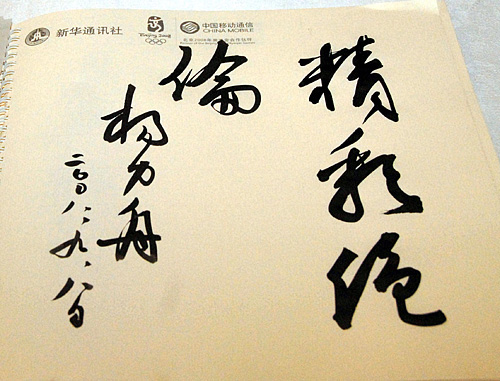 新华通讯社
Beijing 2008
中国移动通信
CHINA MOBILE
北京2008年奥运会合作伙伴
精彩绝
倫
杨力舟
二〇〇八.九.八日